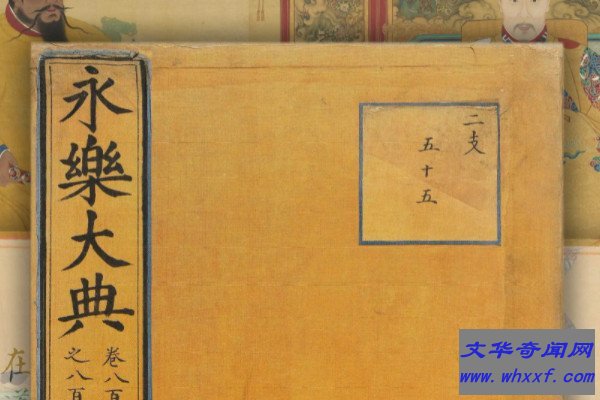 永樂大典
卷八百
之八百
二支
五十五
在
文华奇闻网
www.whxxf.com